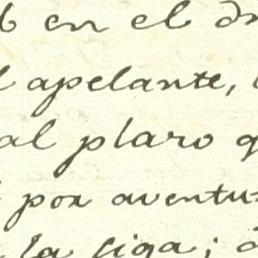 en el
apelante,
al plazo q
por aventu
la siga;